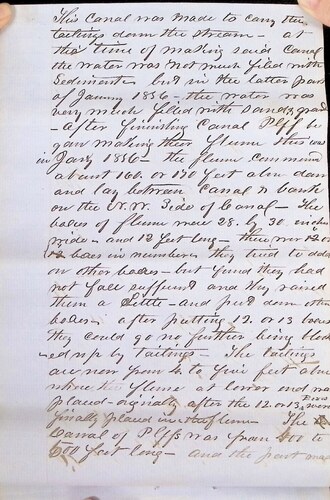 This Canal was made to carry the
tailings down the stream - at
the time of making said Canal
the water was not much filed with
Sediment - but in the latter part
of Janury 1856 - the water was
very much filed with sand & gravel
- after finishing Canal Plff be
gan making their flume this was
in Jany 1856 - the flume commenced
about 160. or 170 feet above dam
and lay between Canal & bank
on the N.W. Side of Canal - The
boxes of flume were 28. by 30 inches
wide - and 12 feet long - there were 12
boxes in number they tried to add
on other boxes - but found they had
not fall sufficient and they raised
them a little - and put down other
boxes after putting 12. or 13 boxes
they could go no further being block
ed up by tailings - The tailings
are now from 4 to five feet above
where the flume at lower end was
placed - originally after the 12 or 13 Boxes were
finally placed in the flume. The
Canal of Plffs was from 400 to
600 feet long - and the part